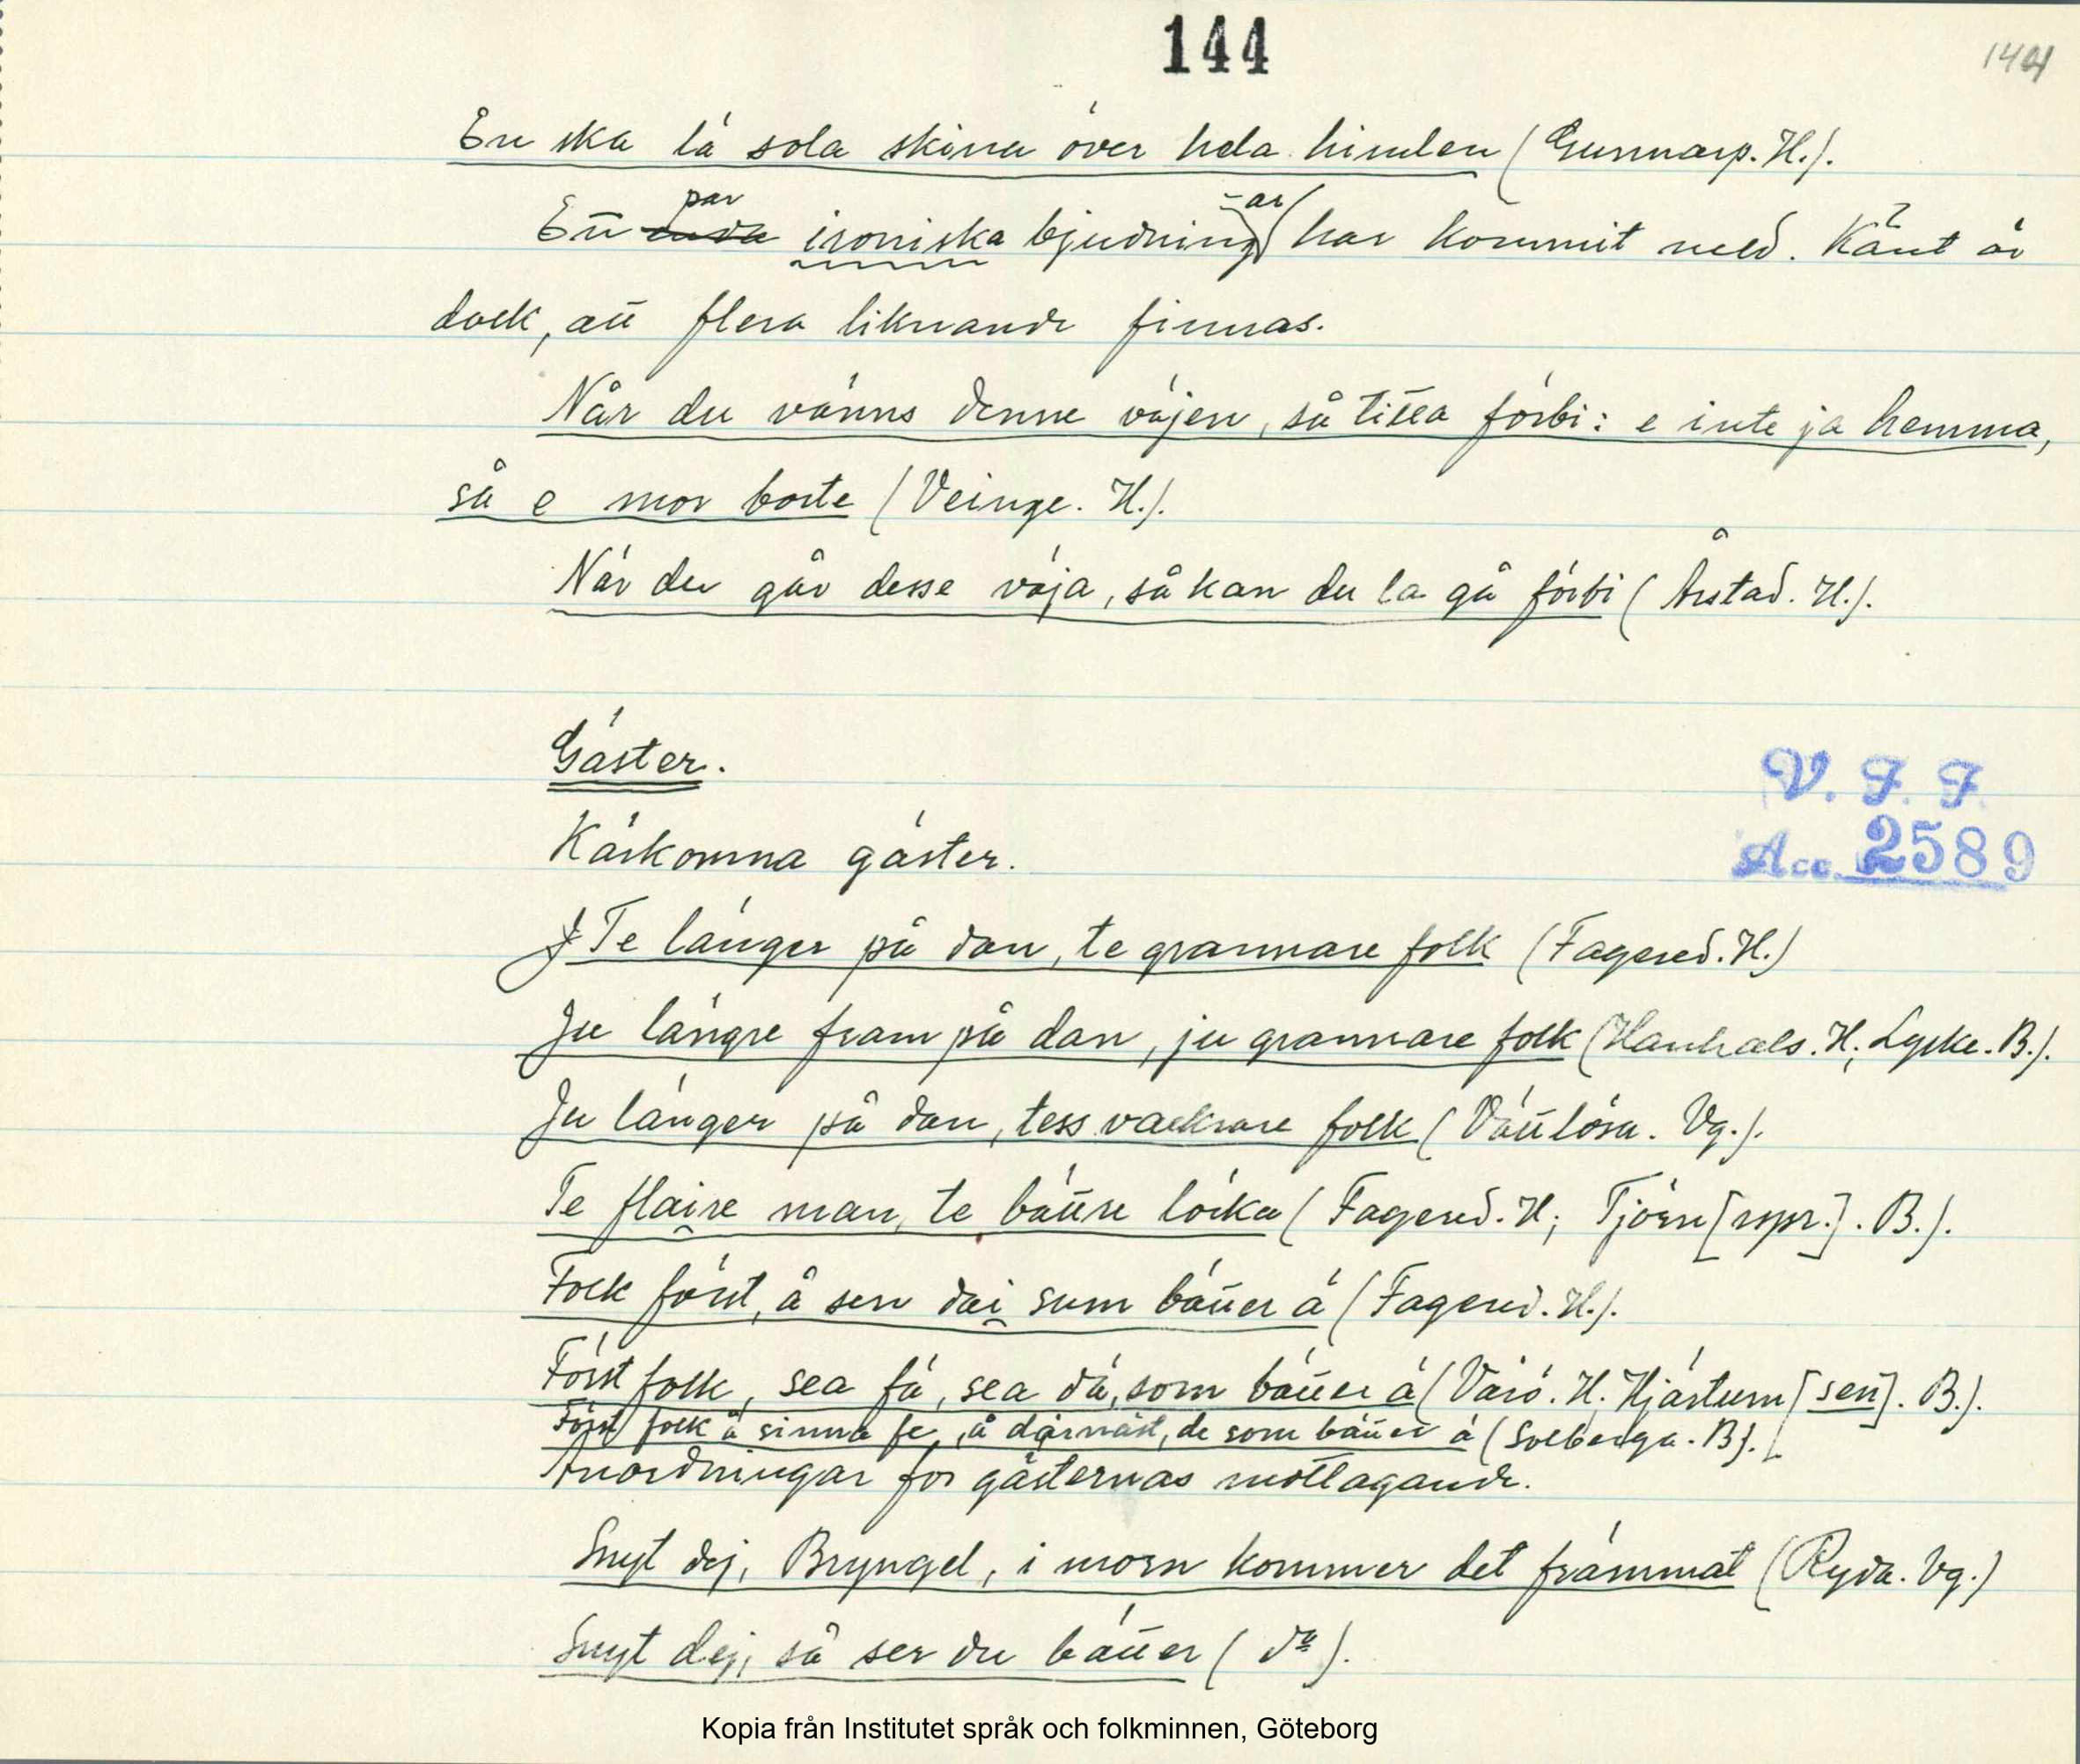 144
144
En ska lá sola skina över hela himlen (Gunnarp. H.).
Ett enda par ironiska bjudningar har kommit med. Känt är
dock, att flera liknande finnas.
Når du vänns denne väjen, så titta förbi: e inte ja hemma,
så e mor borte (Veinge. H.).
När du går desse väja, så kan du la gå förbi (Årstad. H.).
Gäster.
V. F. F
Kärkomna gäster.
Acc. 2589
Te länger på dan, te grannare folk (Fagered. H.)
Ju längre fram på dan, ju grannare folk (Hanhals. H; Lycke. B.).
Ju länger på dan, tess vackrare folk (Vättlösa. Vg.).
Te flaire man, te bättre löcka (Fagered. H; Tjörn [rspr.]. B.).
Folk först, å sen dai sum bätter ä (Fagered. H.).
Först folk, sea fä, sea dä, som bätter ä (Värö. H. Hjärtum [sen]. B.).
Först folk å sinna fe, å därnäst, de som bätter ä (Solberga. B).
Anordningar för gästernas mottagande.
Snyt dej, Bryngel, i morn kommer det främmat (Ryda. Vg.)
Snyt dej, så ser du bätter (do).
Kopia från Institutet språk och folkminnen, Göteborg